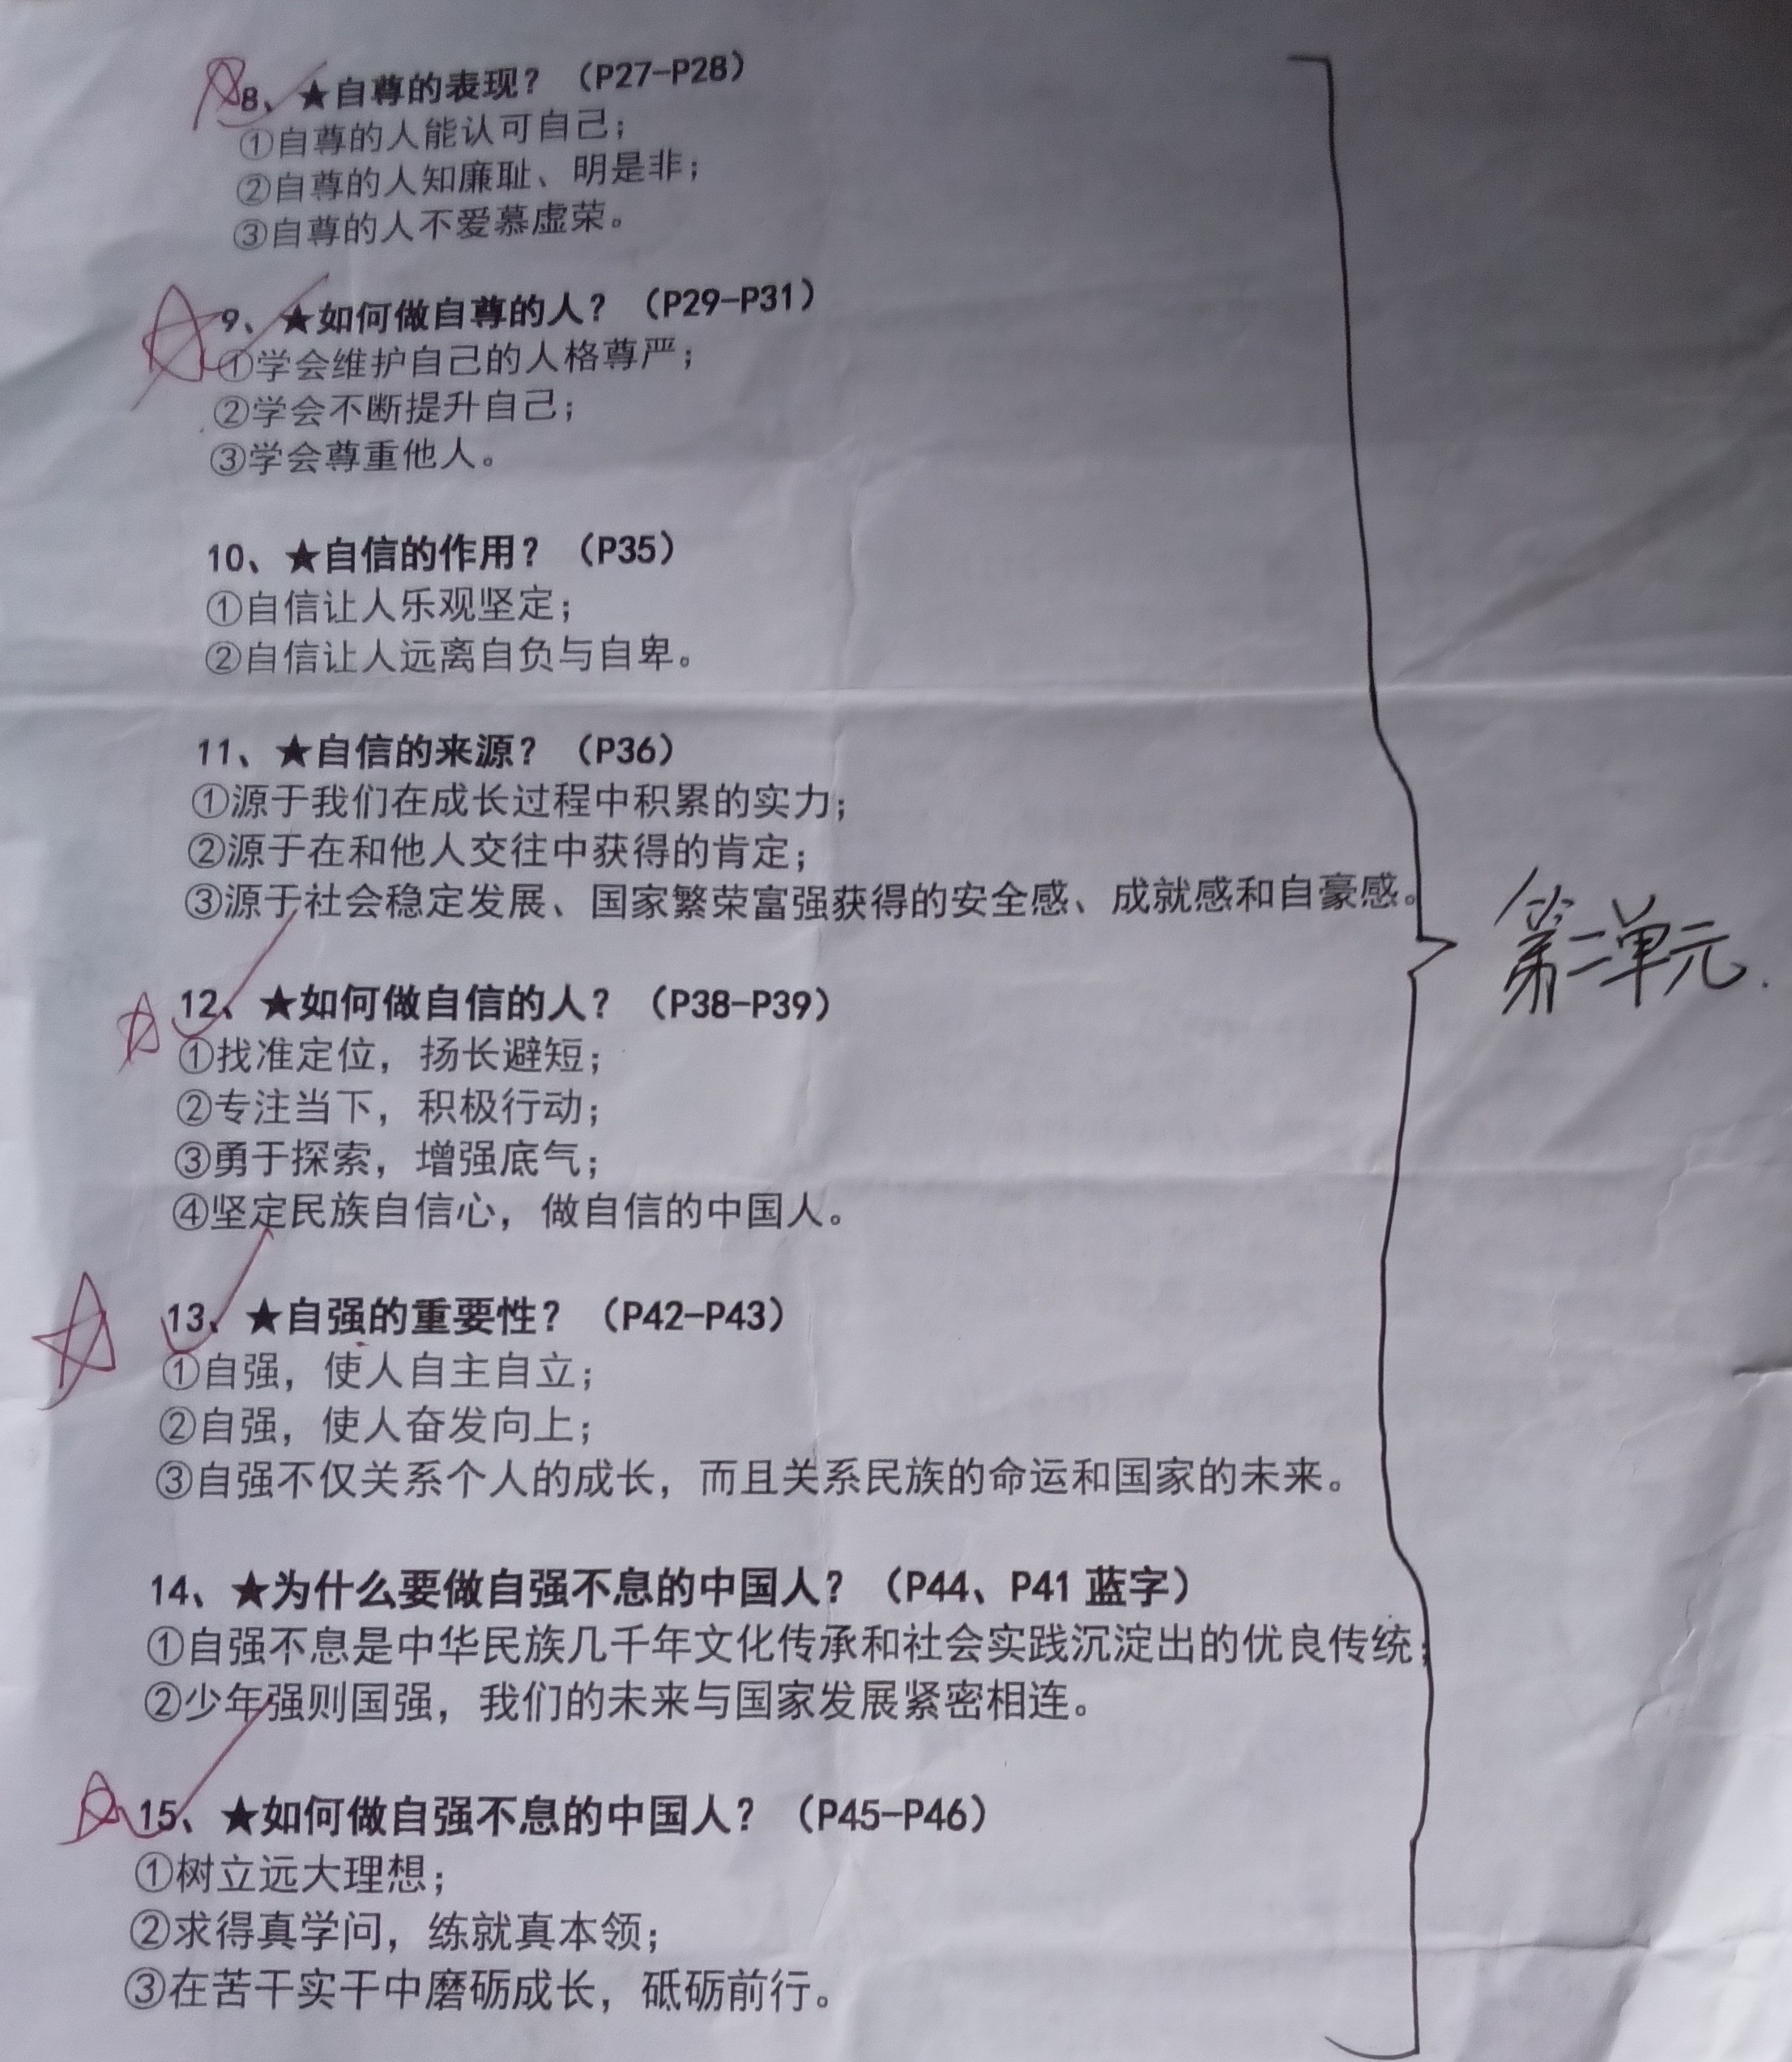 8、★自尊的表现？（P27-P28）
①自尊的人能认可自己；
②自尊的人知廉耻、明是非；
③自尊的人不爱慕虚荣。
9、★如何做自尊的人？（P29-P31）
①学会维护自己的人格尊严；
②学会不断提升自己；
③学会尊重他人。
10、★自信的作用？（P35）
①自信让人乐观坚定；
②自信让人远离自负与自卑。
11、★自信的来源？（P36）
①源于我们在成长过程中积累的实力；
②源于在和他人交往中获得的肯定；
③源于社会稳定发展、国家繁荣富强获得的安全感、成就感和自豪感。
第二单元.
12、★如何做自信的人？（P38-P39）
①找准定位，扬长避短；
②专注当下，积极行动；
③勇于探索，增强底气；
④坚定民族自信心，做自信的中国人。
13、★自强的重要性？（P42-P43）
①自强，使人自主自立；
②自强，使人奋发向上；
③自强不仅关系个人的成长，而且关系民族的命运和国家的未来。
14、★为什么要做自强不息的中国人？（P44、P41 蓝字）
①自强不息是中华民族几千年文化传承和社会实践沉淀出的优良传统；
②少年强则国强，我们的未来与国家发展紧密相连。
15、★如何做自强不息的中国人？（P45-P46）
①树立远大理想；
②求得真学问，练就真本领；
③在苦干实干中磨砺成长，砥砺前行。